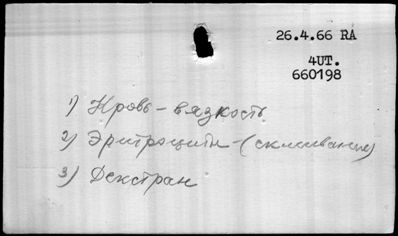 26.4.66 RA
4UT.
660198
1) Кровь - вязкость
2) Эритроциты - (склеивание)
3) Декстран